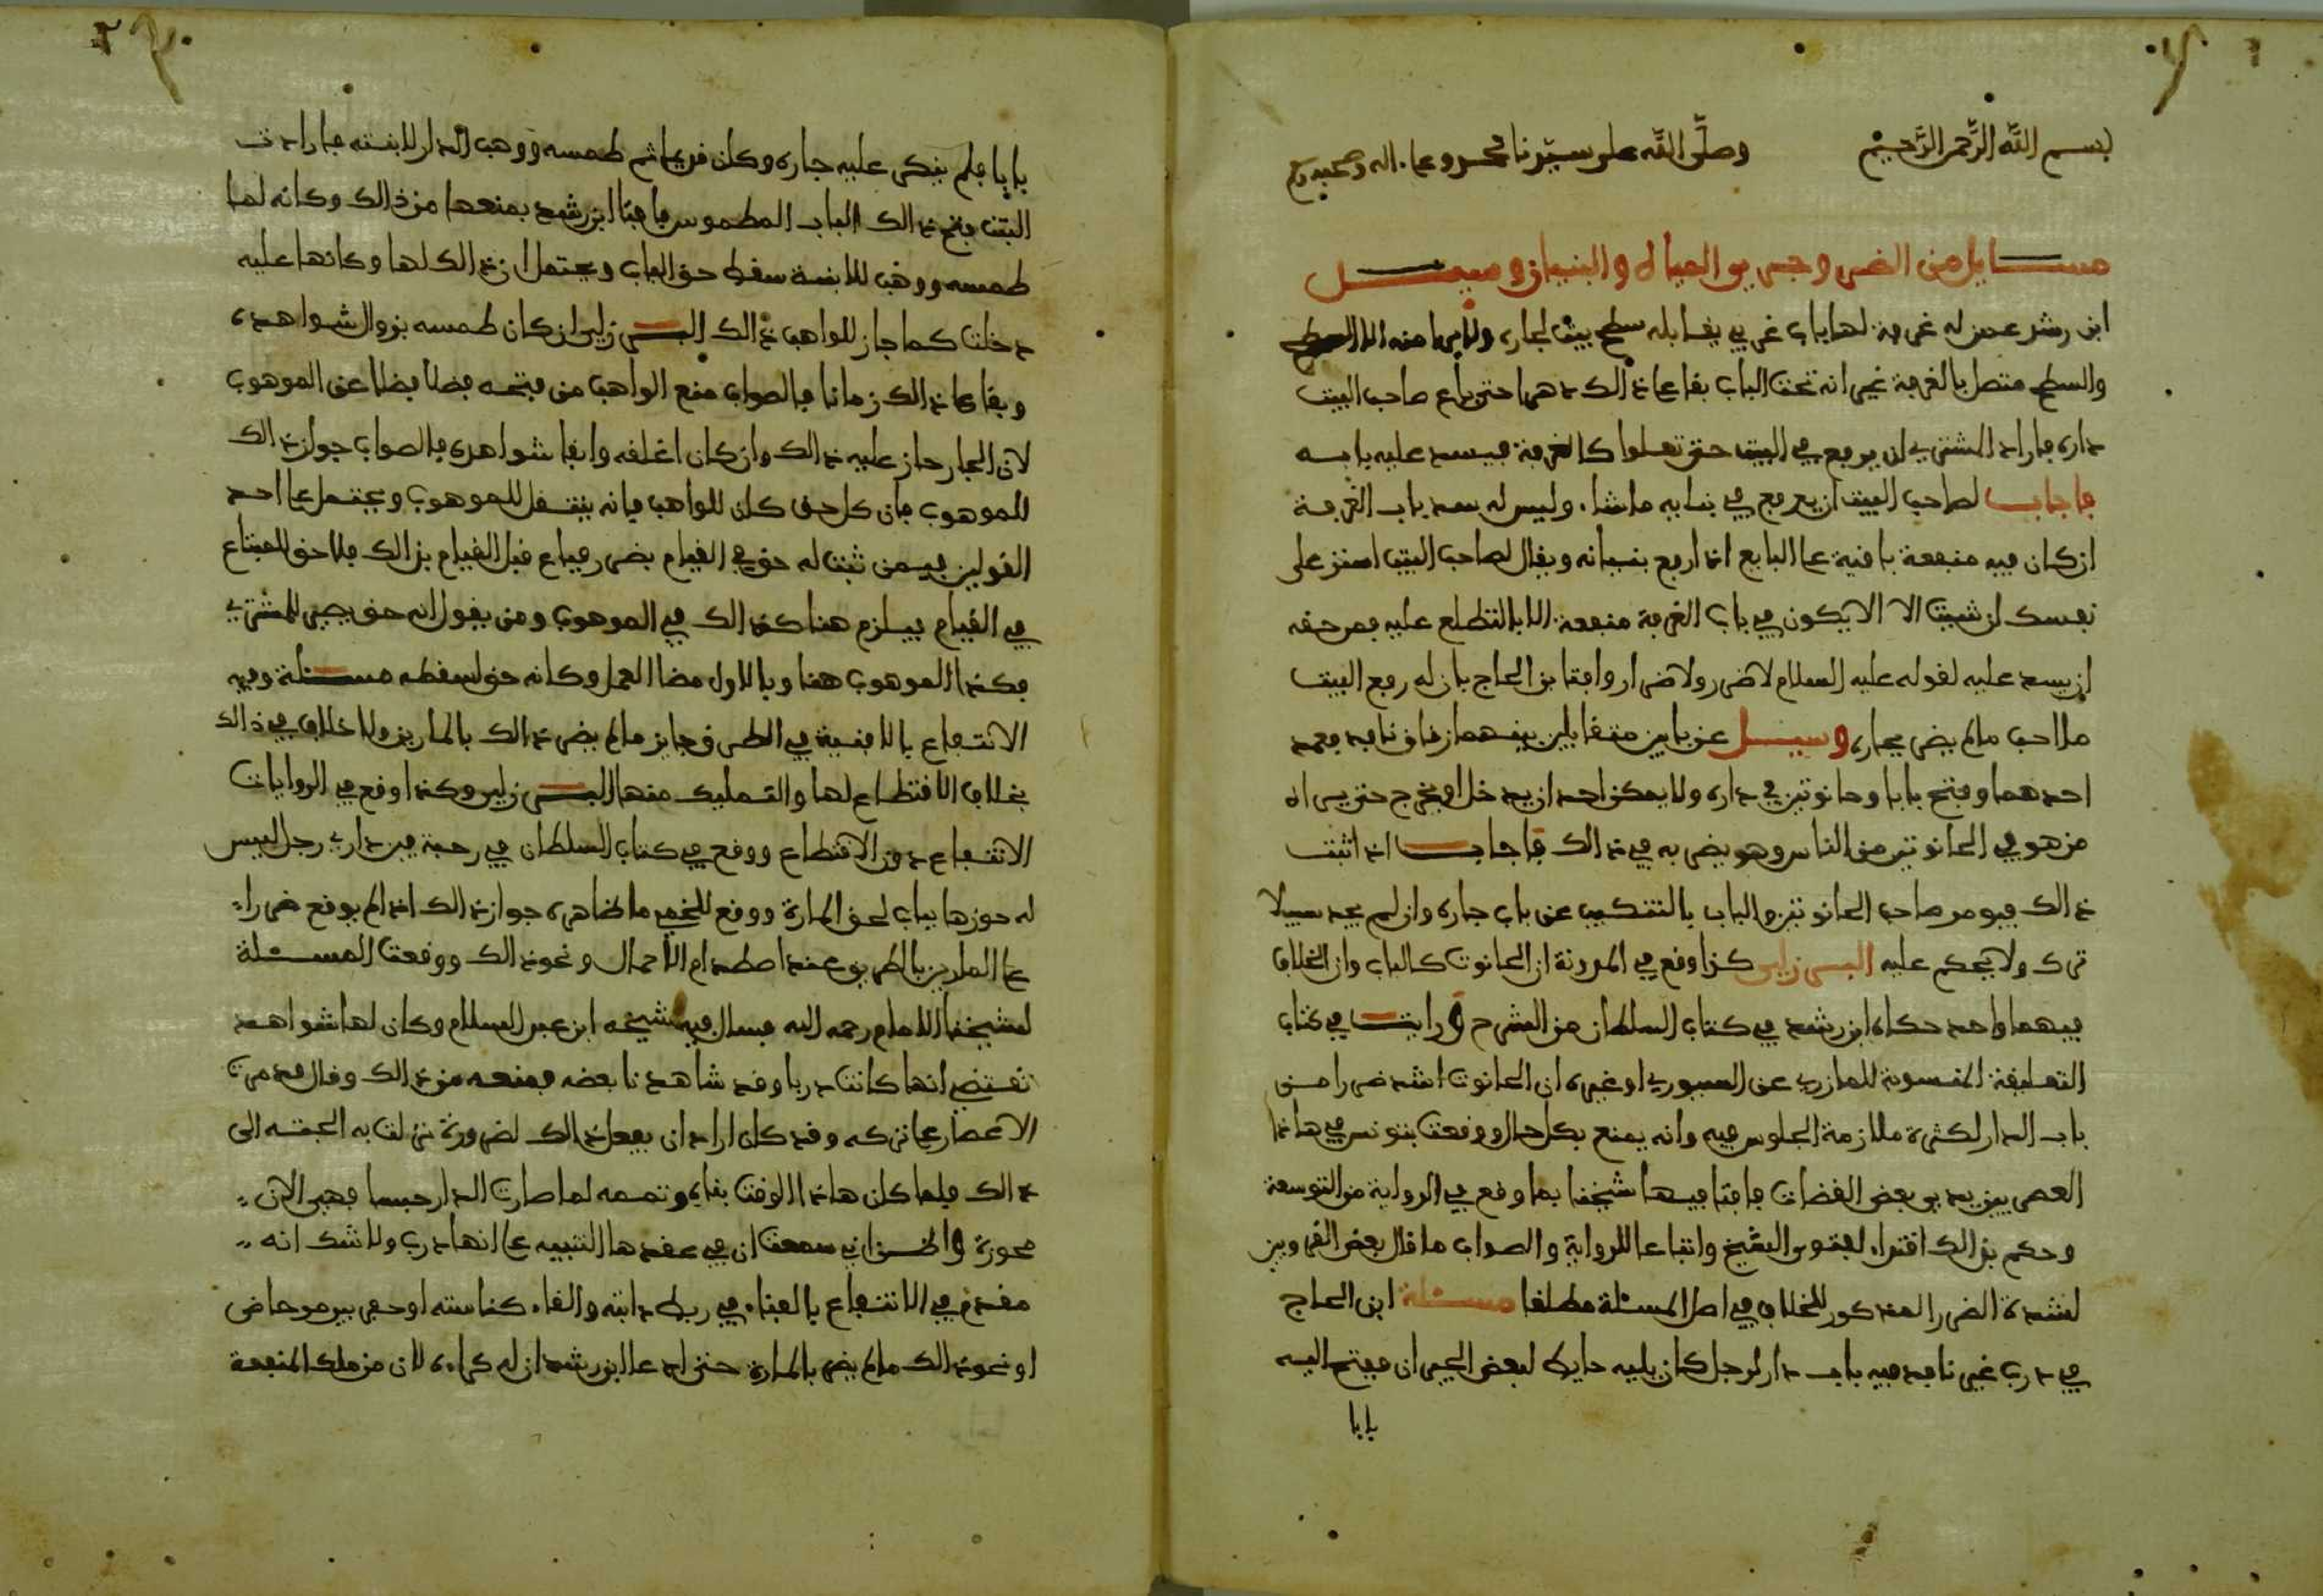 بسم الله الرحمن الرحيم وصلى الله على سيدنا محمد وعلى اله وصحبه
مسايل من الضرر وجري المياه والبنيان وسيل
ابن رشد عمن له غرفة لها باب غربي يقابله سطح بيت لجاره
والسطح متصل بالغرفة غير انه تحت الباب بقا على ذالك دهرا حتى باع صاحب البيت
داره فاراد المشتري ان يرفع في البيت حتى تعلوا كالغرفة فيسد عليه بابه
فاجاب لصاحب البيت ان يرفع في بنايه ما شاء وليس له سد باب الغرفة
ان كان فيه منفعة باقية على البايع اذا رفع بنيانه ويقال لصاحب البيت استر على
نفسك ان شيت الا الا يكون في باب الغرفة منفعة الا بالتطلع عليه فمن حقه
ان يسد عليه لقوله عليه السلام لا ضرر ولا ضرار وافتا بن الحاج بان له رفع البيت
ما احب ما لم يضر بجاره وسيل عن بابين متقابلين بينهما زقاق نافد فعمد
احدهما وفتح بابا وحانوتين في داره ولا يمكن احد ان يدخل او يخرج حتى يراه
من هو في الحانوتين من الناس وهو يضر به في ذالك فاجاب اذا ثبت
ذالك فيومر صاحب الحانوتين والباب بالتنكيب عن باب جاره وان لم يجد سبيلا
ترك ولا يحكم عليه البرزلي كذا وقع في المدونة ان الحانوت كالباب وان الخلاف
فيهما واحد حكاه ابن رشد في كتاب السلطان من الشرح ورايت في كتاب
التعليقة المنسوبة للمازري عن السيوري او غيره ان الحانوت اشد ضررا من
باب الدار لكثرة ملازمة الجلوس فيه وانه يمنع بكل حال ووقعت بتونس في هاذا
العصر بين يدي بعض القضات فافتا فيها شيخنا بما وقع في الرواية من التوسعة
وحكم بذالك اقتداء لفتوى الشيخ واتباعا للرواية والصواب ما قال بعض القرويين
لشدة الضرر المذكور للخلاف في اصل المسئلة مطلقا مسئلة ابن الحاج
في درب غير نافد فيه باب دار لرجل كان يليه حايط لبعض الجيران ففتح اليه
بابا
بابا فلم ينكر عليه جاره وكان قريبا ثم طمسه ووهب الدار لابنته فارادت
البنت فتح ذالك الباب المطموس فافتا ابن رشد بمنعها من ذالك وكانه لما
طمسه ووهب للابنة سقط حق الباب ويحتمل ان ذالك لها وكانها عليه
دخلت كما جاز للواهب ذالك البرزلي ان كان طمسه بزوال شواهده
وبقا على ذالك زمانا فالصواب منع الواهب من فتحه فضلا عن الموهوب
لان الجار حاز عليه ذالك وان كان اغلقه وابقا شواهده فالصواب جواز ذالك
للموهوب فان كل حق كان للواهب فانه ينتقل للموهوب ويحتمل على احد
القولين فيمن ثبت له حق في القيام بضرر فباع قبل القيام بذالك فلا حق للمبتاع
في القيام فيلزم هنا كذالك في الموهوب ومن يقول انه حق يصير للمشتري
فكذا الموهوب هنا وبالاول مضا العمل وكانه حق اسقطه مسئلة وفيه
الانتفاع بالافنية في الطرق جايز ما لم يضر ذالك بالمارين ولا خلاف في ذالك
بخلاف الاقتطاع لها والتمليك منها البرزلي وكذا وقع في الروايات
الانتفاع دون الاقتطاع ووقع في كتاب السلطان في رحبة بين داري رجل ليس
له حوزها بباب لحق المارة ووقع للخمي ما ظاهره جواز ذالك اذا لم يوقع ضررا
على المارين بالطريق عند اصطدام الاحمال ونحو ذالك ووقعت المسئلة
لشيخنا الامام رحمه الله فسال فيه شيخه ابن عبد السلام وكان لها شواهد
تقتضي انها كانت دربا وقد شاهدنا بعضه فمنعه من ذالك وقال قد مرت
الاعصار على تركه وقد كان اراد ان يفعل ذالك لضرورة نزلت به الجئته الى
ذالك فلما كان هاذا الوقت بناه وتممه لما صارت الدار حبسا فهي الان
محوزة والظن اني سمعت ان في عقدها التنبيه على انها درب ولا شك انه
مقدم في الانتفاع بالفناء في ربط دابته والقاء كناسته او حفر بير مرحاض
او نحو ذالك ما لم يضر بالمارة حتى ادعا ابن رشد ان له كراءه لان من ملك المنفعة